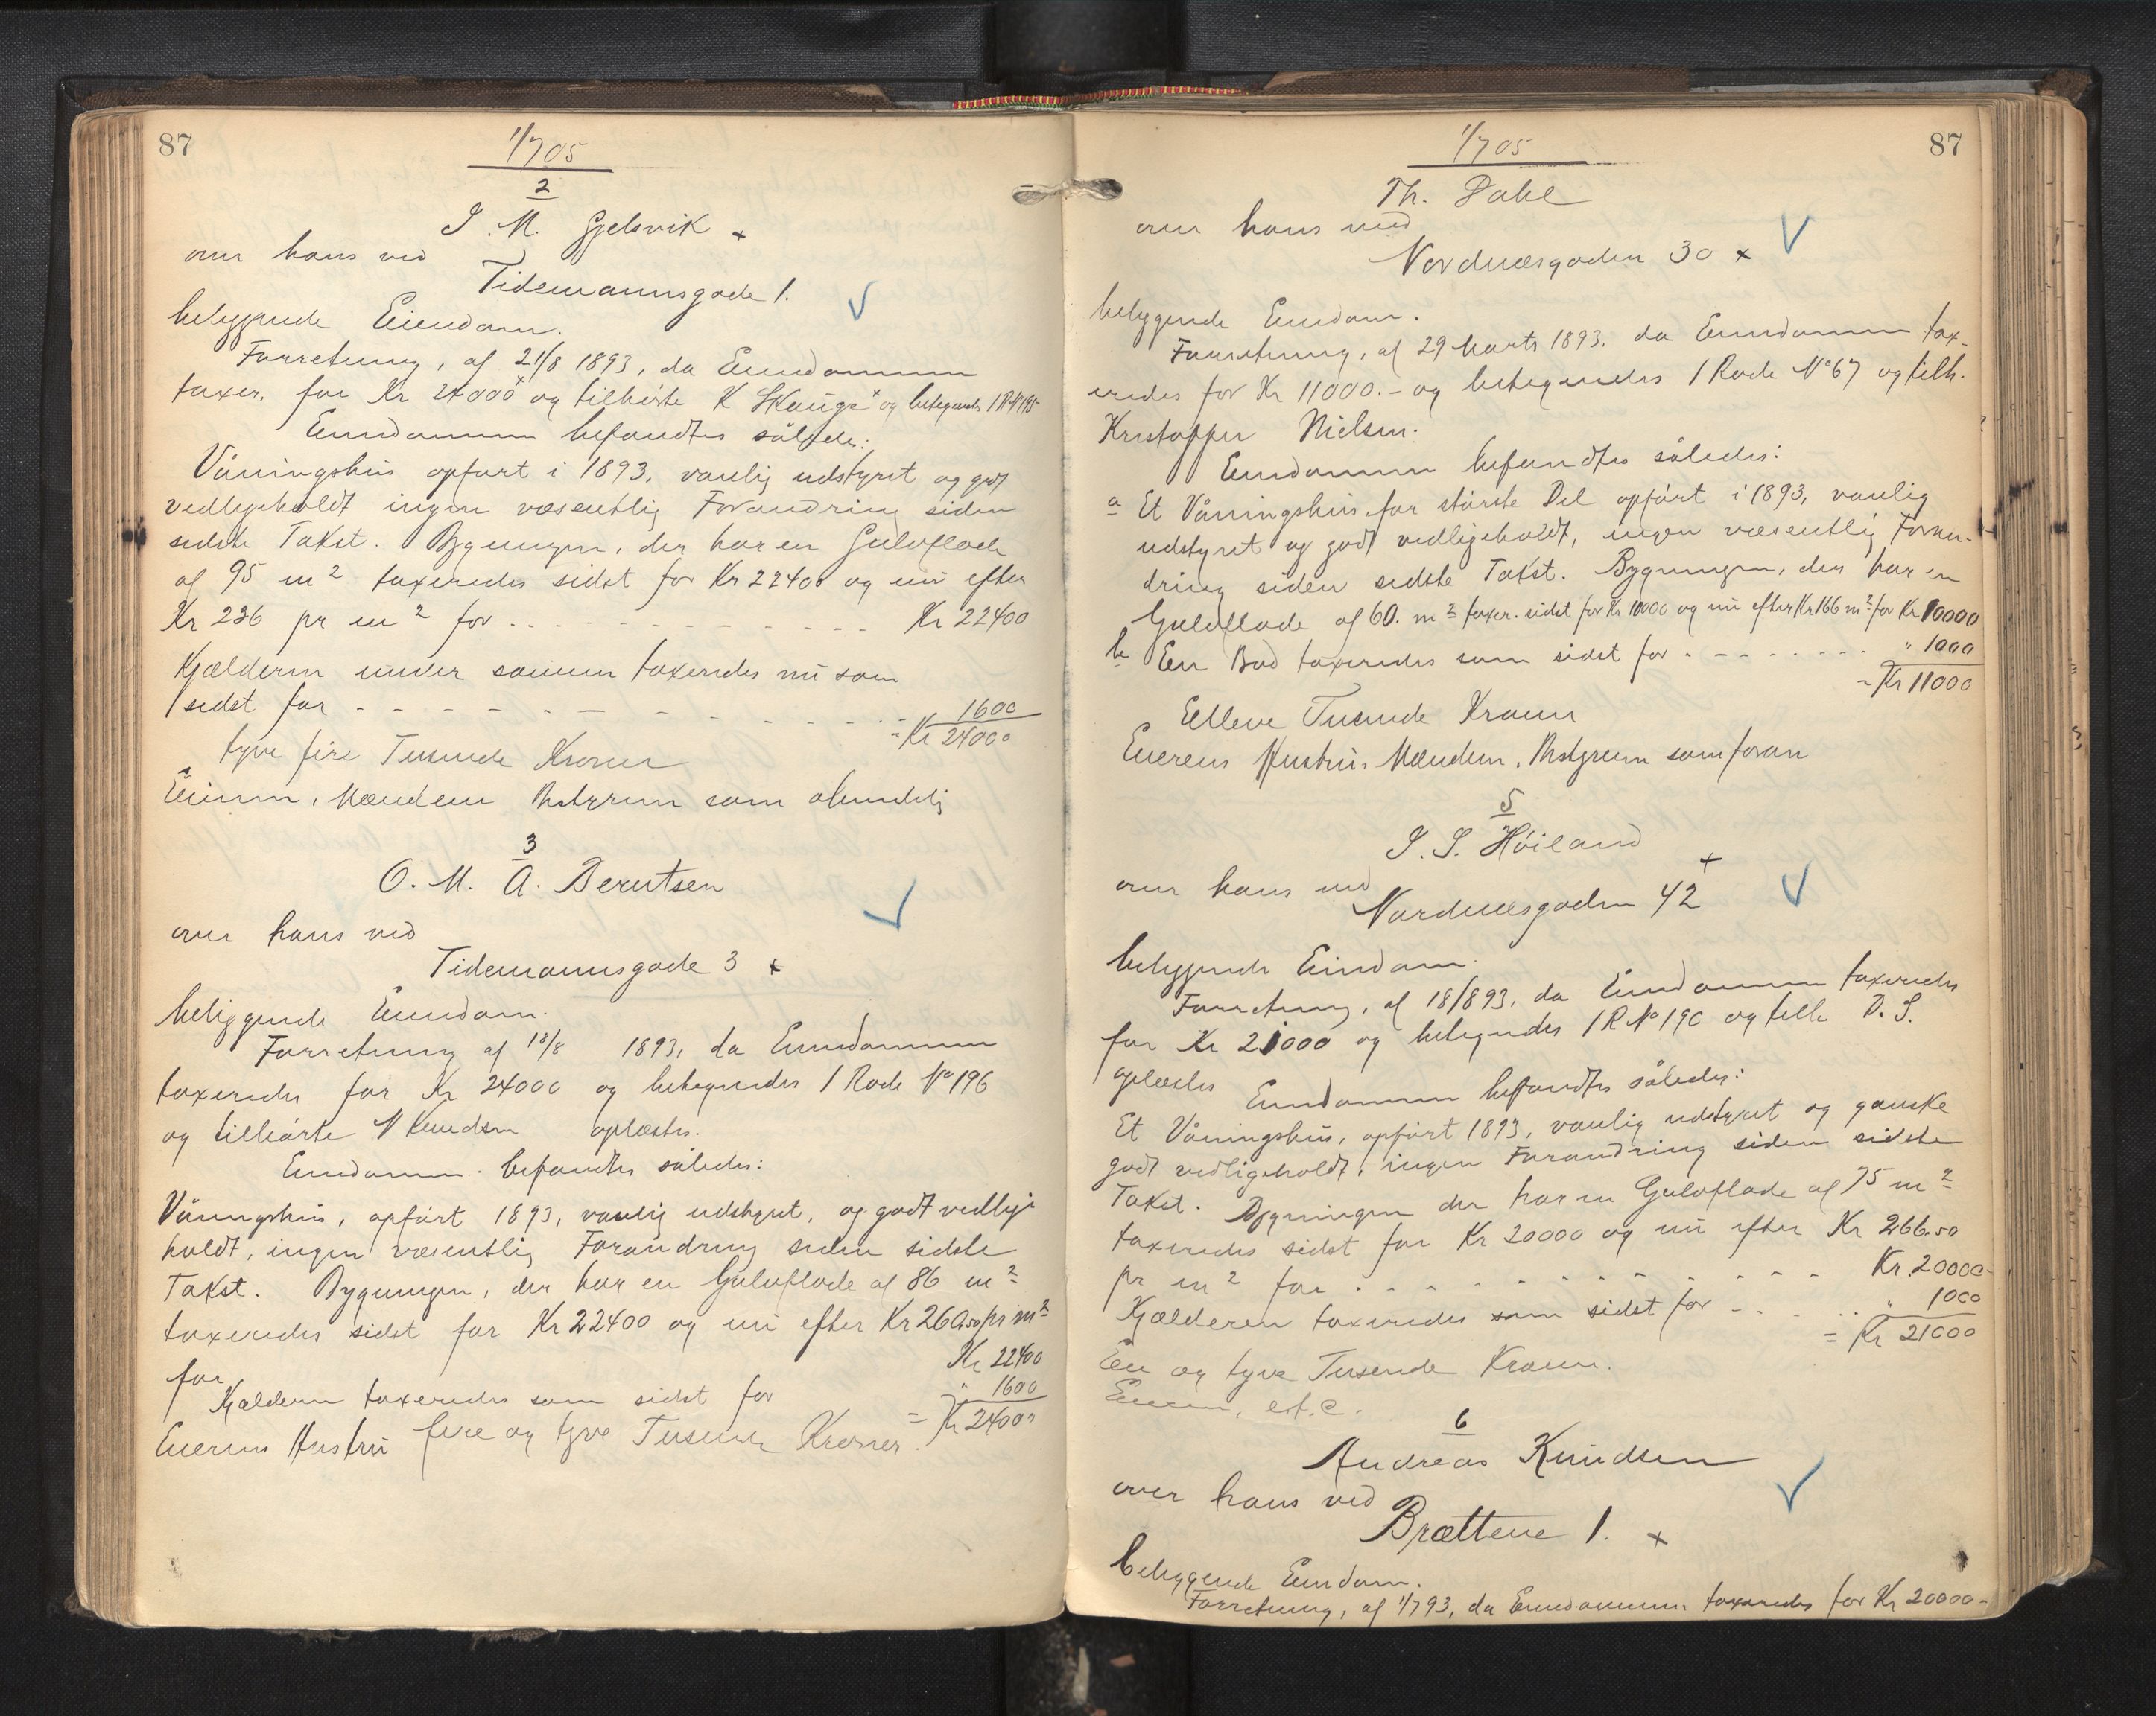 87
1/7 05
2
I. M. Gjelsvik x
over hans ved
Tidemannsgade 1.
beliggende Eiendom.
Forretning, af 21/8 1893, da Eiendommen
taxer. for Kr 24000 og tilhørte K Skauge og betegnedes 1 R No 195
Eiendommen befandtes således:
Våningshus opført i 1893, vanlig udstyret og godt
vedligeholdt ingen væsentlig Forandring siden
sidste Takst. Bygningen, der har en Gulvflade
af 95 m² taxeredes sidst for Kr 22400 og nu efter
Kr 236 pr m² for Kr 22400
Kjælderen under samme taxeredes nu som
sidst for 1600
= Kr 24000
tyve fire Tusinde Kroner
Eieren, Mændene Bestyreren som
3
O. M. A. Berntsen
over hans ved
Tidemannsgade 3 x
beliggende Eiendom.
Forretning af 18/8 1893, da Eiendommen
taxeredes for Kr 24000 og betegnedes 1 Rode No 196
og tilhørte N Knudsen oplæstes.
Eiendommen befandtes således:
Våningshus, opført 1893, vanlig udstyret, og godt vedlige
holdt, ingen væsentlig Forandring siden sidste
Takst. Bygningen, der har en Gulvflade af 86 m²
taxeredes sidst for Kr 22400 og nu efter Kr 260.50 pr m²
for Kr 22400
Kjælderen taxeredes som sidst for " 1600
= Kr 24000
Eierens Hustru fire og tyve Tusinde Kroner.
87
1/7 05
Th. Dahl
over hans ved
Nordnæsgaden 30 x
beliggende Eiendom.
Forretning, af 29 Marts 1893. da Eiendommen tax-
eredes for Kr 11000.- og betegnedes 1 Rode No 67 og tilh.
Kristoffer Nielsen.
Eiendommen befandtes således:
a Et Våningshus for største Del opført i 1893, vanlig
udstyret og godt vedligeholdt, ingen væsentlig Foran-
dring siden sidste Takst. Bygningen, der har en
Gulvflade af 60. m² taxer. sidst for Kr 10000 og nu efter Kr 166 m² for Kr 10000
b En Bod taxeredes som sidst for " 1000
= Kr 11000
Elleve Tusinde Kroner
Eierens Hustru, Mændene, Bestyreren som foran
5
I. S. Høiland
over hans ved
Nordnæsgaden 42 x
beliggende Eiendom.
Forretning, af 18/8 93, da Eiendommen taxeredes
for Kr 21000 og betegnedes 1 R No 190 og tilh D. S.
oplæstes
Eiendommen befandtes således:
Et Våningshus, opført 1893, vanlig udstyret og ganske
godt vedligeholdt, ingen Forandring siden sidste
Takst. Bygningen der har en Gulvflade af 75 m²
taxeredes sidst for Kr 20000 og nu efter Kr 266.50
pr m² for Kr. 20000
Kjælderen taxeredes som sidst for " 1000
= Kr 21000
En og tyve Tusinde Kroner.
Eieren, e.t.c.
6
Andreas Knudsen
over hans ved
Brættene 1. x
beliggende Eiendom.
Forretning, af 1/7 93, da Eiendommen taxeredes for Kr 20000-